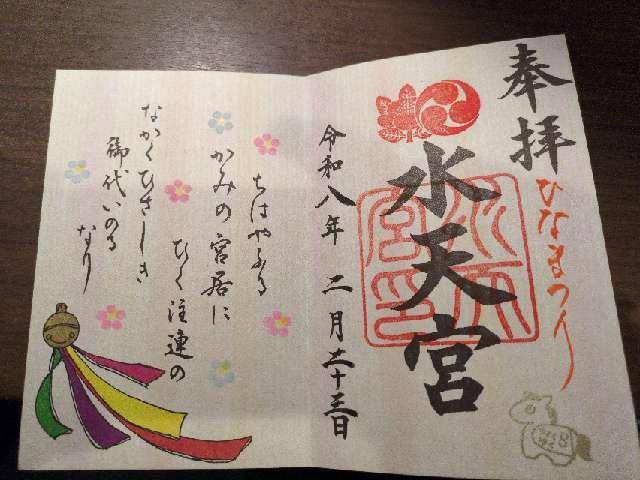 奉拝
ひなまつり
水天宮
令和八年 二月二十三日
ちはやふる
かみの宮居に
ひく注連の
なかくひさしき
御代いのる
なり